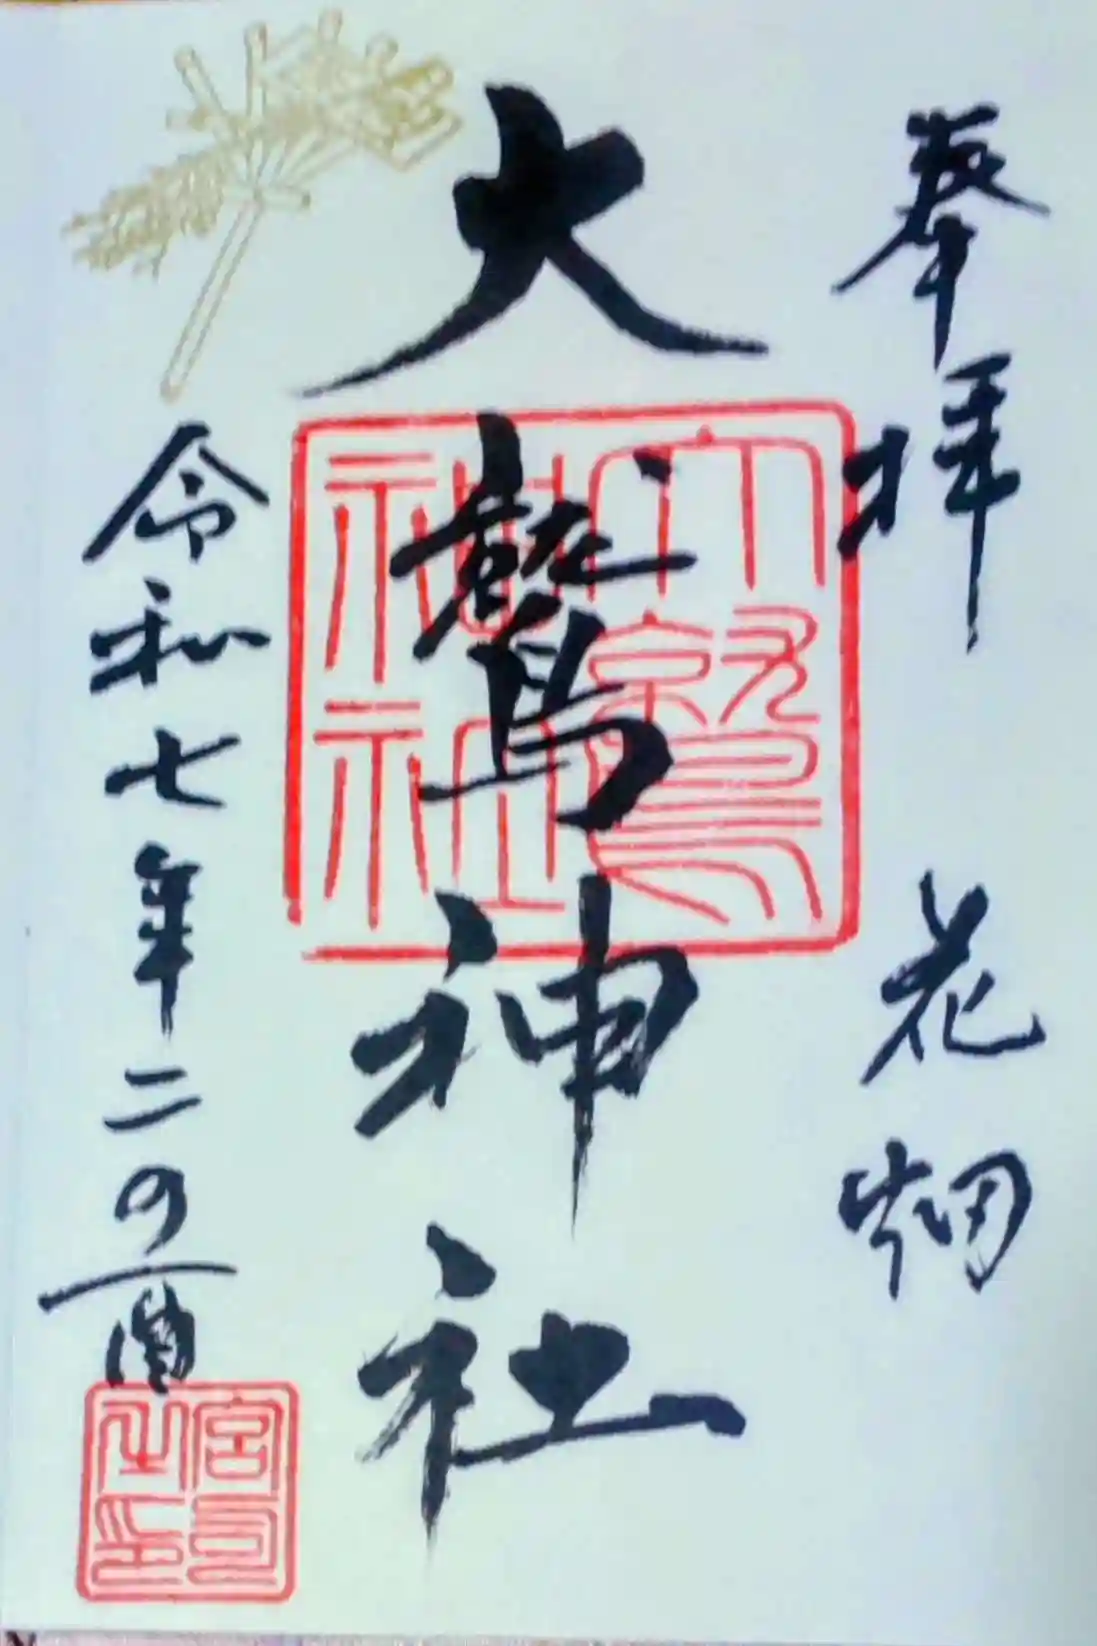 奉拝　花畑
大鷲神社
大鷲神社
令和七年二の酉
宮司之印